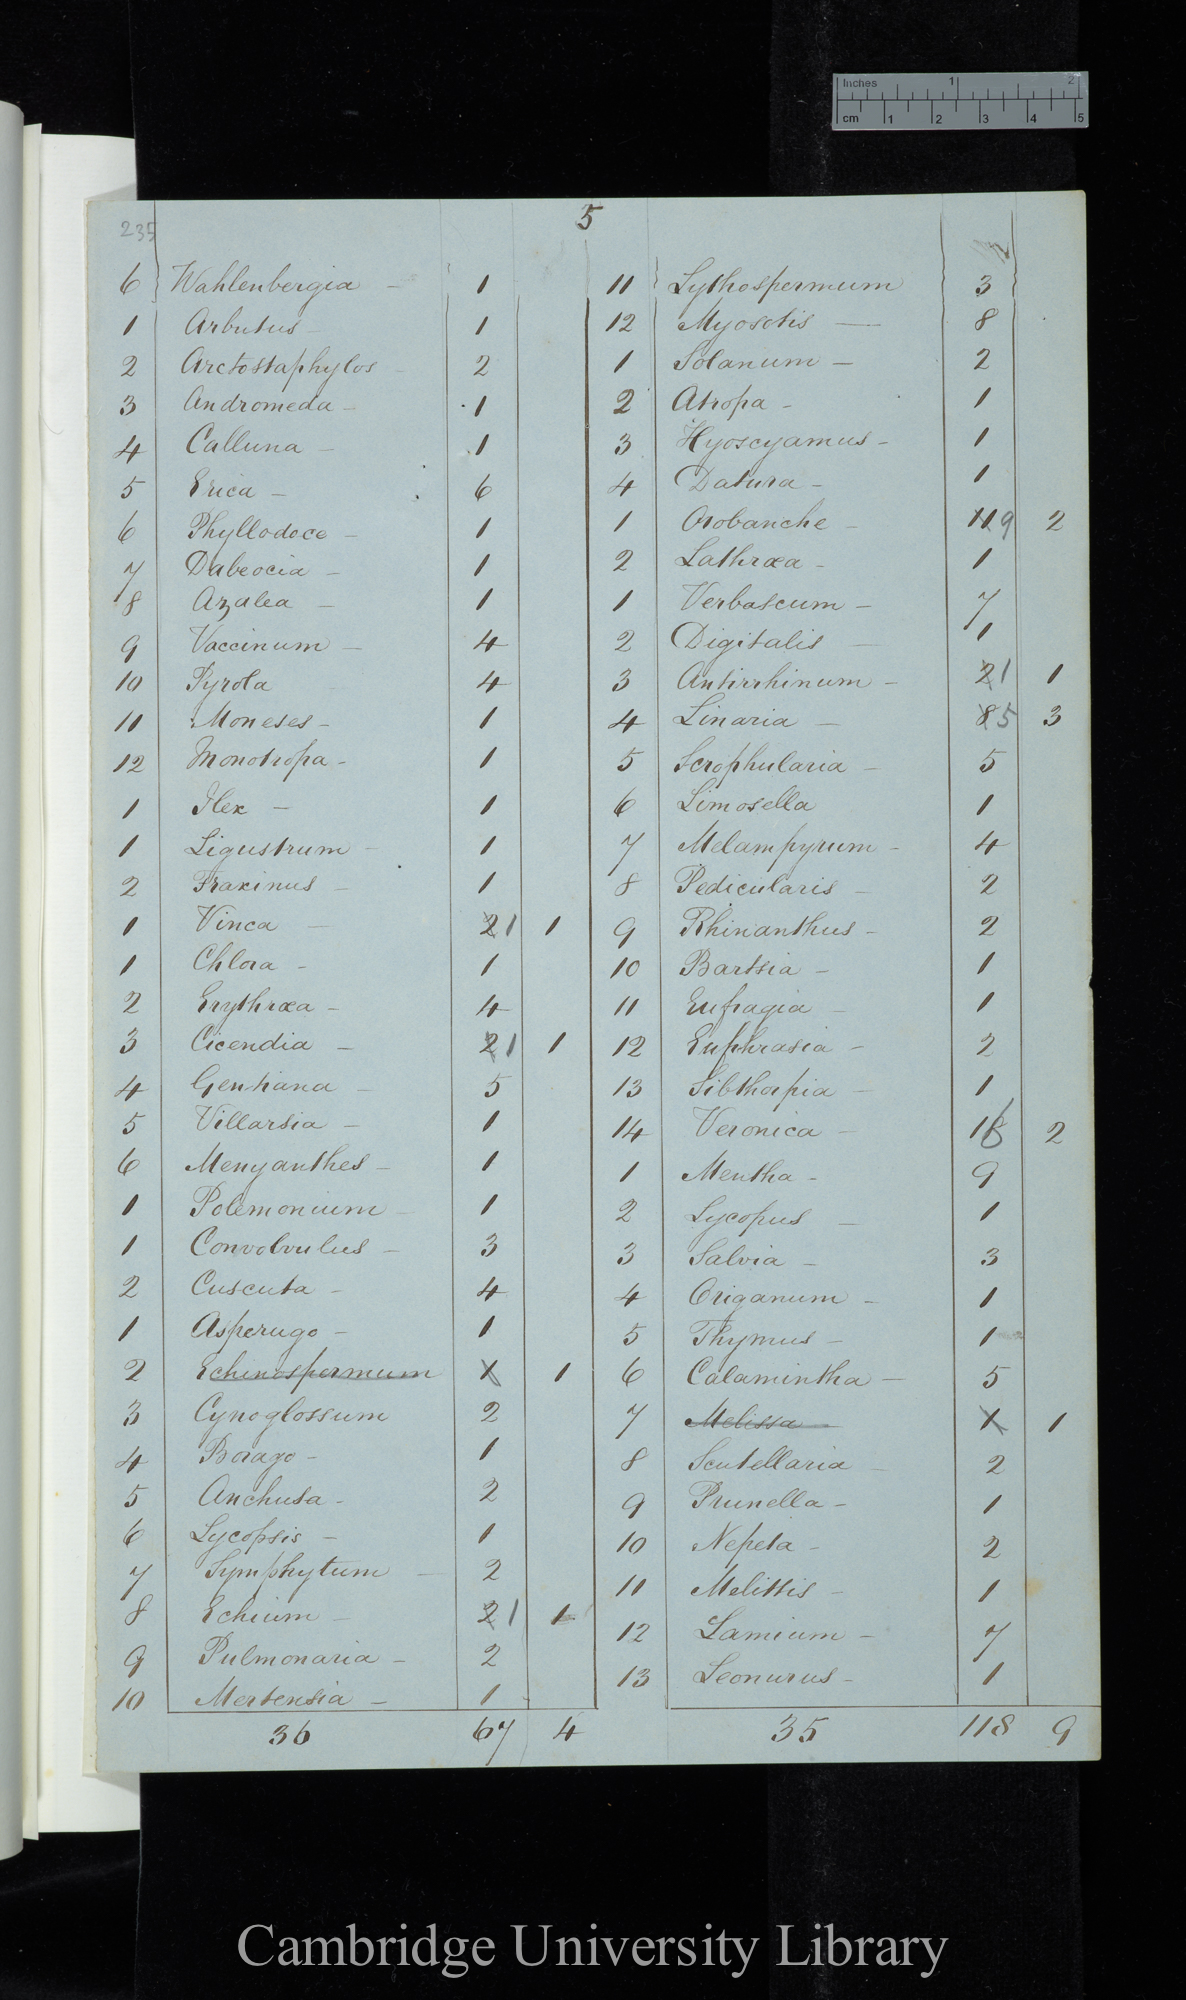 Inches 1 2
cm 1 2 3 4 5
235
5
6 Wahlenbergia — 1
1 Arbutus — 1
2 Arctostaphylos — 2
3 Andromeda — 1
4 Calluna — 1
5 Erica — 6
6 Phyllodoce — 1
7 Dabeocia — 1
8 Azalea — 1
9 Vaccinum — 4
10 Pyrola 4
11 Moneses — 1
12 Monotropa — 1
1 Ilex — 1
1 Ligustrum — 1
2 Fraxinus — 1
1 Vinca — 2 1 1
1 Chlora — 1
2 Erythræa — 4
3 Cicendia — 2 1 1
4 Gentiana — 5
5 Villarsia — 1
6 Menyanthes — 1
1 Polemonium — 1
1 Convolvulus — 3
2 Cuscuta — 4
1 Asperugo — 1
2 Echinospermum 1 1
3 Cynoglossum 2
4 Borago — 1
5 Anchusa — 2
6 Lycopsis — 1
7 Symphytum — 2
8 Echium — 2 1 1
9 Pulmonaria — 2
10 Mertensia — 1
36 67 4
11 Lythospermum 3
12 Myosotis — 8
1 Solanum — 2
2 Atropa — 1
3 Hyoscyamus — 1
4 Datura — 1
1 Orobanche — 11 9 2
2 Lathræa — 1
1 Verbascum — 7
2 Digitalis — 1
3 Antirrhinum — 2 1 1
4 Linaria — 8 5 3
5 Scrophularia — 5
6 Limosella 1
7 Melampyrum — 4
8 Pedicularis — 2
9 Rhinanthus — 2
10 Bartsia — 1
11 Eufragia — 1
12 Euphrasia — 2
13 Sibthorpia — 1
14 Veronica — 16 2
1 Mentha — 9
2 Lycopus — 1
3 Salvia — 3
4 Origanum — 1
5 Thymus — 1
6 Calamintha — 5
7 Melissa — 1 1
8 Scutellaria — 2
9 Prunella — 1
10 Nepeta — 2
11 Melittis — 1
12 Lamium — 7
13 Leonurus — 1
35 118 9
Cambridge University Library